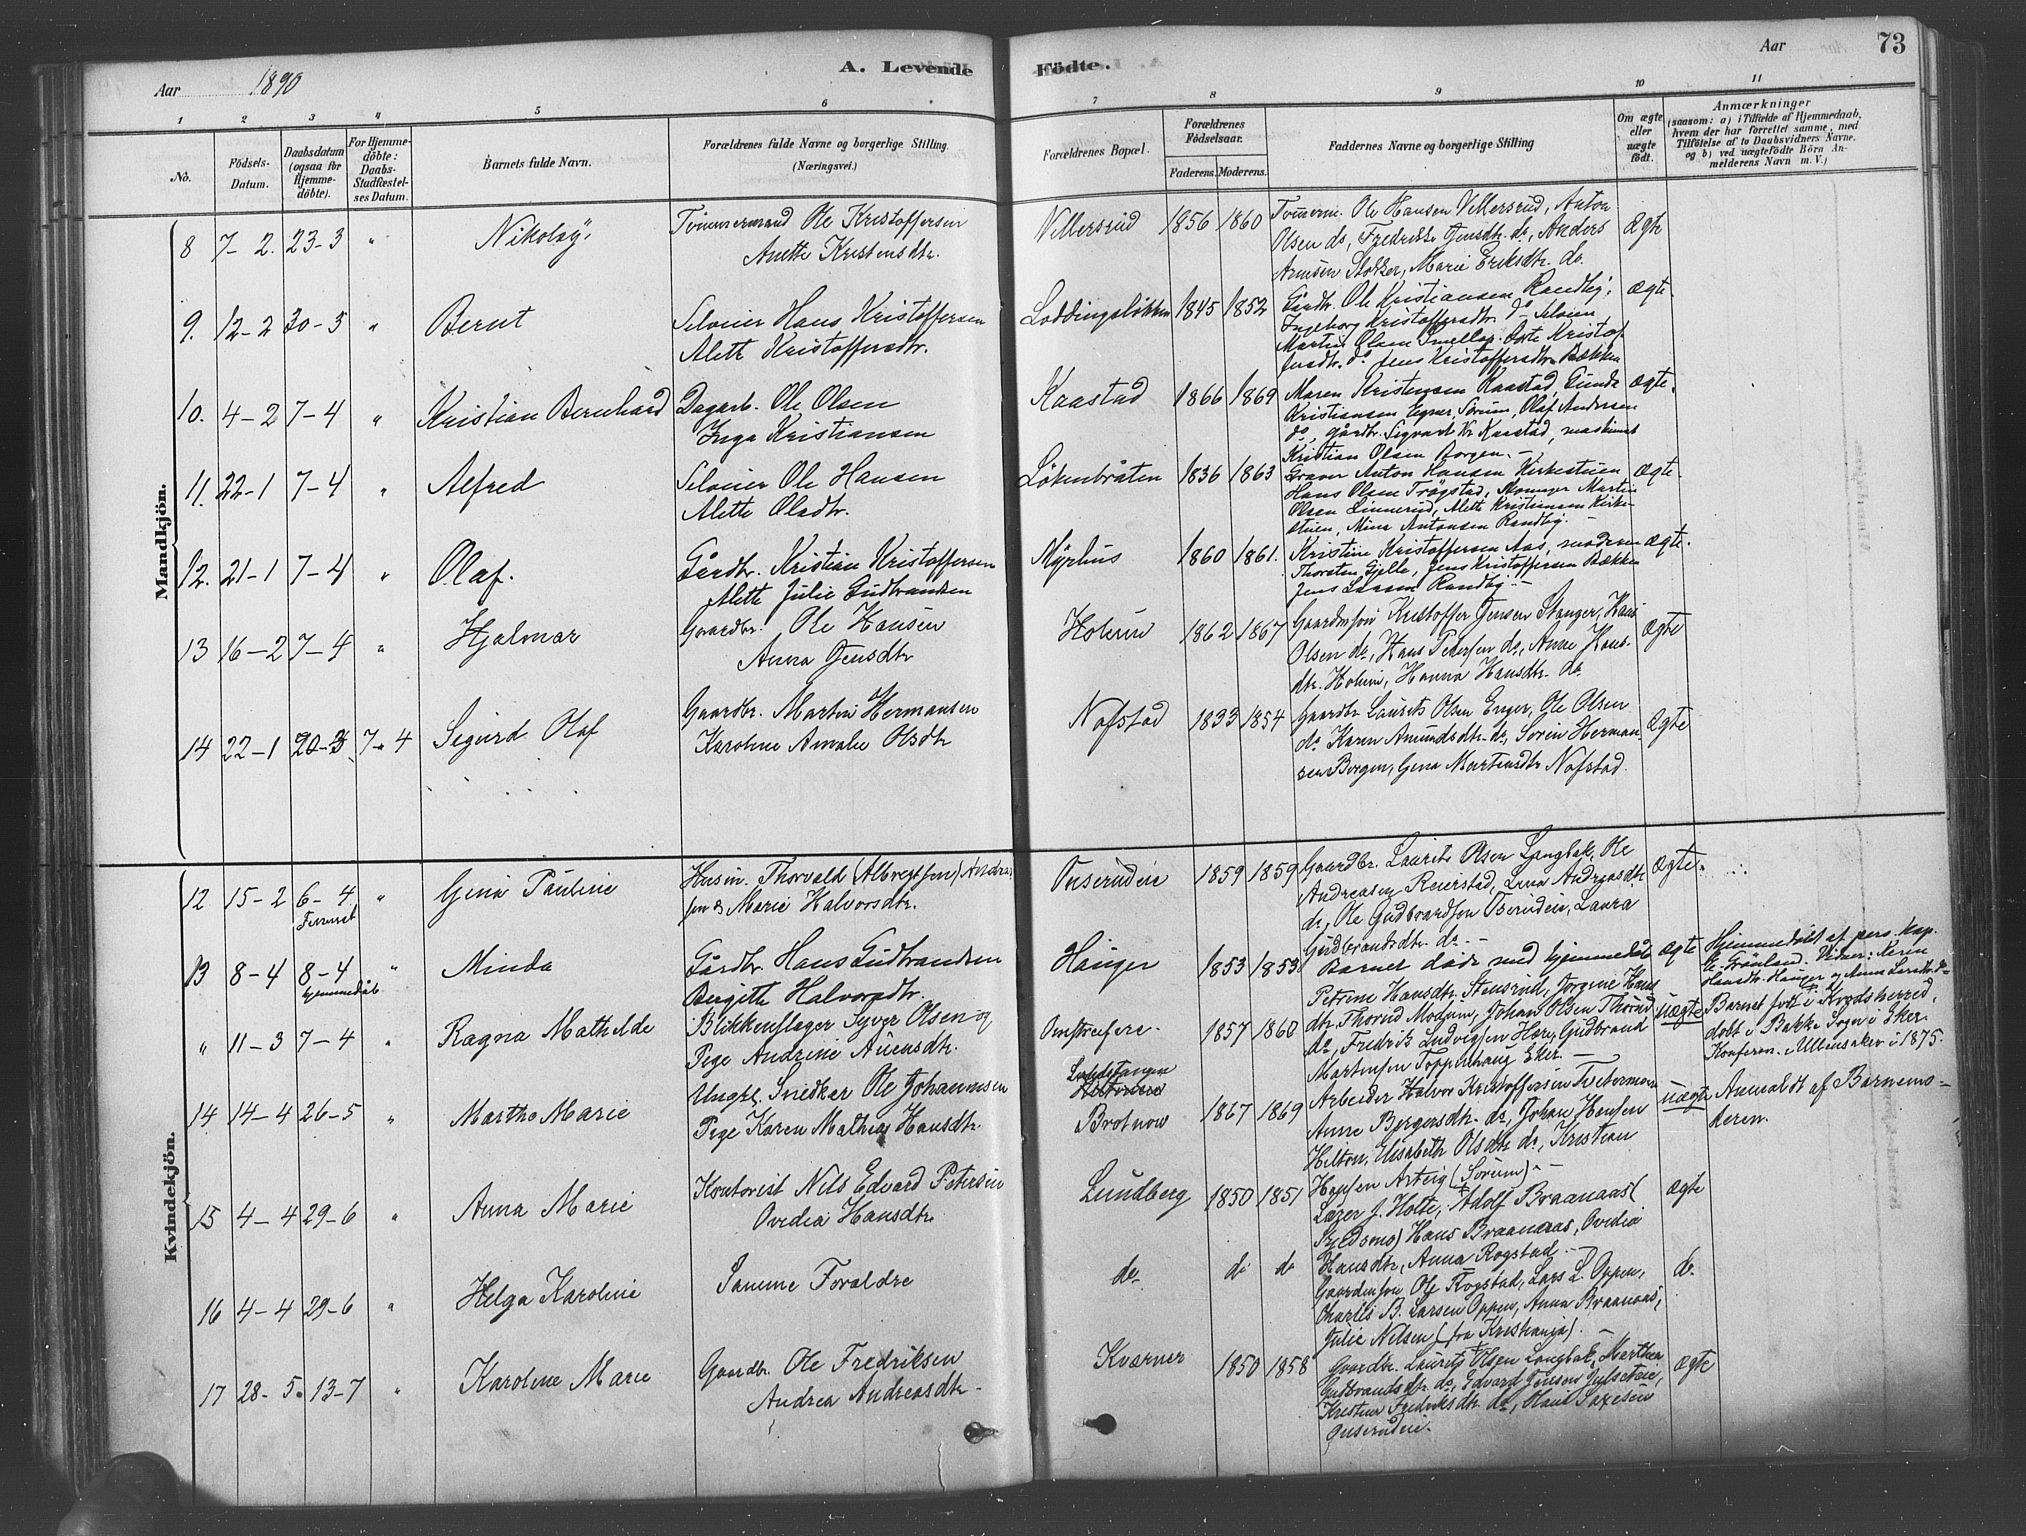 Aar 1890
A. Levende Födte.
Aar
73
1 2 3 4 5 6 7 8 9 10 11
No.
Födsels-Datum.
Daabsdatum (ogsaa for Hjemme-döbte).
For Hjemme-döbte: Daabs-Stadfæstel-ses Datum.
Barnets fulde Navn.
Forældrenes fulde Navne og borgerlige Stilling. (Næringsvei.)
Forældrenes Bopæl.
Forældrenes Födselsaar.
Faderens. Moderens.
Faddernes Navne og borgerlige Stilling
Om ægte eller uægte födt.
Anmærkninger
(saasom: a) i Tilfælde af Hjemmedaab, hvem der har forrettet samme, med Tilföielse af to Daabsvidners Navne. og b) ved uægtefödte Börn An-melderens Navn m. V.)
Mandkjön.
8 7-2 23-3 " Nikolay. Tömmermand Ole Kristoffersen
Anette Kristensdtr.
Villersrud 1856 1860 Tömerm. Ole Hansen Villersrud, Anton
Olsen do, Fredrikke Jensdtr. do, Anders
Arnesen Slokker, Marie Eriksdtr. do.
Ægte
9. 12-2 30-3 " Bernt Selveier Hans Kristoffersen
Alette Kristoffersdtr.
Loddingsløkken 1845 1852 Gårdbr. Ole Kristiansen Randby,
Ingeborg Kristoffersdtr. do Selveier
Martin Olsen Smellop. Kristof
fersdtr. do Jens Kristoffersdtr. Bækken
Ægte.
10. 4-2 7-4 " Kristian Bernhard Dagarb. Ole Olsen
Inga Kristiansen
Kaastad 1866 1869 Maren Kristensen Kaastad, Gunda
Kristiansen Egner, Sörum, Olaf Andersen
do, gårdbr. Sigvart Kr. Kaastad, maskinist
Kristian Olsen Borgen. -
Ægte.
11. 22-1 7-4 " Alfred Selveier Ole Hansen
Alette Olsdtr.
Løkenbråten 1836 1863 Graver Anton Hansen Kirkestuen
Hans Olsen Trøgstad, Martin
Olsen Linnerud, Alette Kristiansen Kirke-
stuen, Mina Antonsen Randby.
Ægte.
12. 21-1 7-4 " Olaf. Gårdbr. Kristian Kristoffersen
Alette Julie Gudbrandsen
Myrhus 1860 1861. Kristine Kristoffersen Aas, moderen
Thorsten Gjelle, Jens Kristoffersen Bækken
Jens Larsen Randby. -
Ægte.
13 16-2 7-4 " Hjalmar Gaardbr. Ole Hansen
Anna Jensdtr
Holum 1862 1867 Gaardmsøn Kristoffer Jensen Stanger, Hans
Olsen do, Hans Petersen do, Anne Hans-
dtr. Holum, Hanna Hansdtr. do
Ægte
14 22-1 20-3 7-4 Sigurd Olaf Gaardbr. Martin Hermansen
Karoline Amalie Olsdtr
Nafstad 1833 1854 Gaardbr Laurits Olsen Enger, Ole Olsen
do Karen Amundsdtr. do, Sørin Herman-
sen Borgen, Gina Martinsdtr Nafstad.
Ægte
Kvindekjön.
12 15-2 6-4 Fermet " Gina Pauline Husm. Thorvald (Albregtsen) Andrea-
sen & Marie Halvorsdtr.
Onserudeie 1859 1859 Gaardbr. Laurits Olsen Langbak, Ole
Andreasen Reierstad, Lena Andreasdtr.
do, Ole Gudbrandsen Oserudeie, Laura
Gudbrandsdtr. do. -
Ægte.
13 8-4 8-4 hjemmedøb " Minda Gårdbr. Hans Gudbrandsen
Birgitte Halvorsdtr.
Hauger 1853 1853 Barnet døde med hjemmedåb
ægte Hjemmedøbt af pers. kap.
E. Grønland. Vidner: Karen
Hansdtr. Hauger og Anna Larsdtr. do
" 11-3 7-4 " Ragna Mathilde Blikkenslager Syver Olsen og
Pige Andrine Aurensdtr.
Omstreifere. 1857 1860 Petrine Hansdtr. Stensrud, Jorgine Hans
dtr. Thorud Modum, Johan Olsen Thorud
do, Fredrik Ludvigsen Hær, Gudbrand
Martinsen Toppenhaug Eker. -
uægte Barnet født i Krødsherred,
døbt i Bakke Sogn i Eker.
Konferer. Ullensaker i 1875.
14. 14-4 26-5 " Martha Marie Ungk. Snedker Ole Johannesen
Pige Karen Mathias Hansdtr.
Landstangen
Brotnow 1867 1869 Arbeider Halvor Kristoffersen Tietorman
Anne Bergersdtr. do, Johan Hansen
Hilton, Elisabeth Olsdtr do, Kristian
Hansen Arteig (Sörum) -
uægte Anmeldt af Barnemo-
deren.
15 4-4 29-6 " Anna Marie Kontorist Nils Edvard Petersen
Ovedia Hansdtr.
Lundberg 1850 1851 Lazer J. Holte, Adolf Braanaas (
Skedsmo) Hans Braanaas, Ovedia
Hansdtr, Anna Rogstad. -
ægte
16 4-4 29-6 " Helga Karoline Samme Foraldre
do do do Gaardmsøn Ole Rogstad, Lars L. Oppen,
Charles B. Larsen Oppen, Anna Braanaas,
Julie Nilsen (fra Kristiania). -
do.
17 28-5. 13-7 " Karoline Marie Gaardbr. Ole Fredriksen
Andrea Andreasdtr. -
Kværner 1850 1858 Gaardbr. Laurits Olsen Langbak, Marthea
Gudbrandsdtr. do, Edvard Jensen Julseteie,
Kristine Fredriksdtr. do, Hans
Onserudeie.
ægte